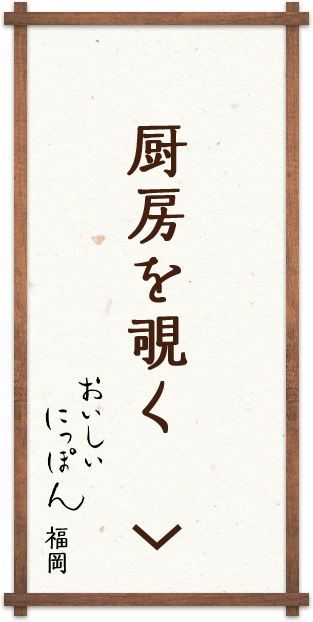 厨房を覗く
おいしい
にっぽん
福岡